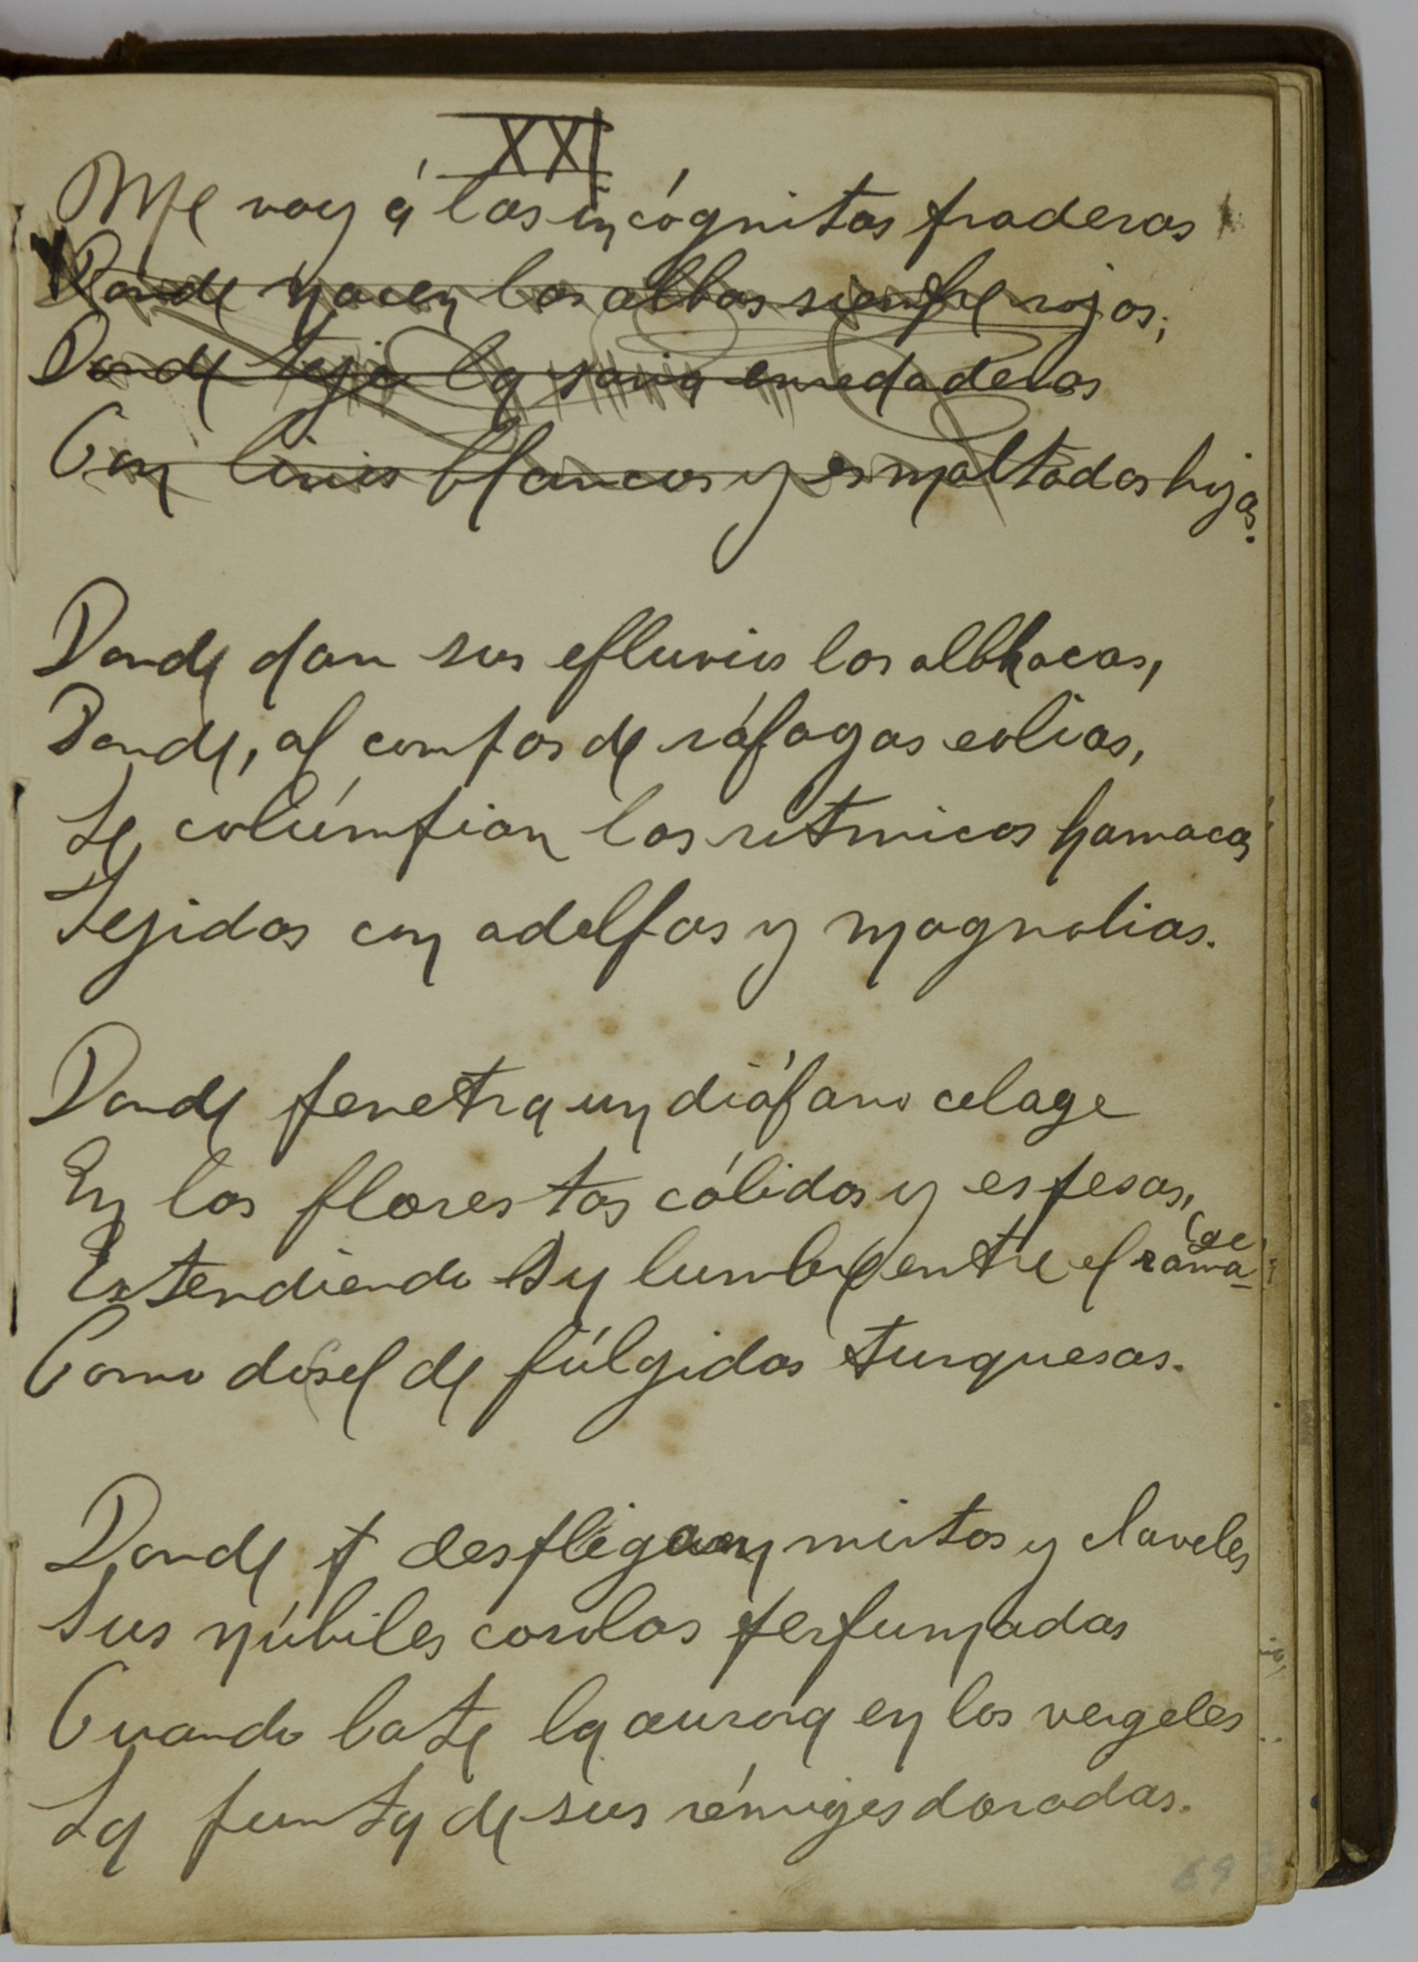 XXI
Me voy á las incógnitas praderas
Donde nacen las albas siempre rojas;
Donde teje la savia enredaderas
Con linios blancos y esmaltadas hojas.
Donde dan sus efluvios las albhacas,
Donde, al compas de ráfagas eolias,
Se colúmpian las ritmicas hamacas
Tejidas con adelfas y magnolias.
Donde penetra un diáfano celage
En las florestas cálidas y espesas,
Extendiendo su lumbre entre el rama-
ge,
Como dosel de fúlgidas turquesas.
Donde desplegan mirtos y claveles
Sus núbiles corolas perfumadas
Cuando bate la aurora en los vergeles
La punta de sus rémiges doradas.
69